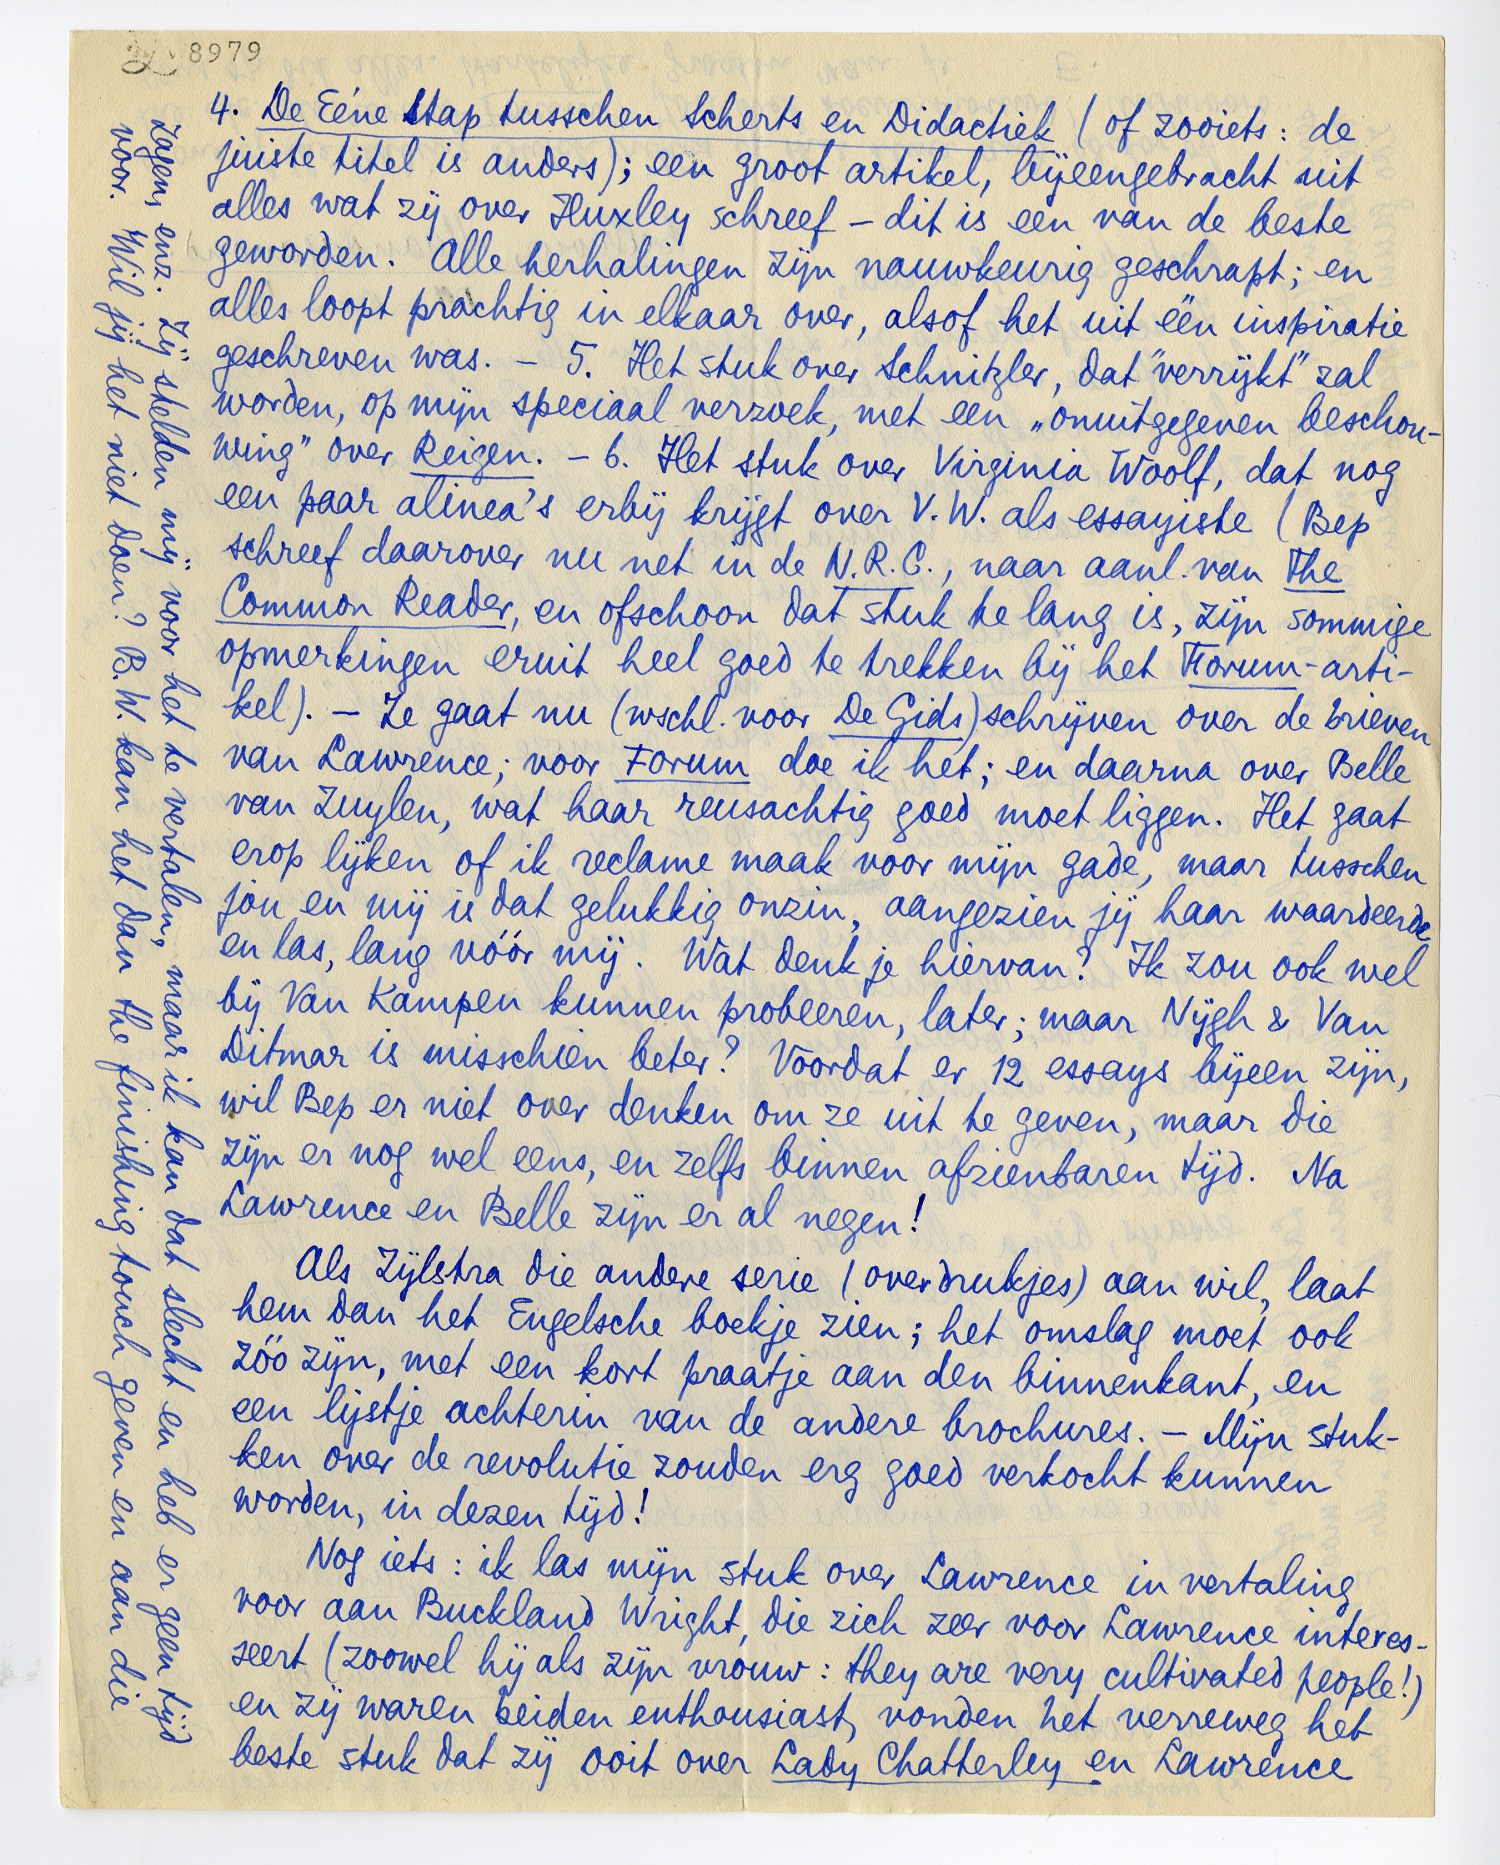 8979
4. De Eéne Stap tusschen Scherts en Didactiek (of zooiets: de
juiste titel is anders); een groot artikel, bijeengebracht uit
alles wat zij over Huxley schreef – dit is een van de beste
geworden. Alle herhalingen zijn nauwkeurig geschrapt; en
alles loopt prachtig in elkaar over, alsof het uit één inspiratie
geschreven was. – 5. Het stuk over Schnitzler, dat "verrijkt" zal
worden, op mijn speciaal verzoek, met een „onuitgegeven beschou-
wing" over Reigen. – 6. Het stuk over Virginia Woolf, dat nog
een paar alinea's erbij krijgt over V.W. als essayiste (Bep
schreef daarover nu net in de N.R.C., naar aanl. van The
Common Reader, en ofschoon dat stuk te lang is, zijn sommige
opmerkingen eruit heel goed te trekken bij het Forum-arti-
kel). – Ze gaat nu (wschl. voor De Gids) schrijven over de brieven
van Lawrence; voor Forum doe ik het; en daarna over Belle
van Zuylen, wat haar reusachtig goed moet liggen. Het gaat
erop lijken of ik reclame maak voor mijn gade, maar tusschen
jou en mij is dat gelukkig onzin, aangezien jij haar waardeerde
en las, lang vóór mij. Wat denk je hiervan? Ik zou ook wel
bij Van Kampen kunnen probeeren, later; maar Nijgh & Van
Ditmar is misschien beter? Voordat er 12 essays bijeen zijn,
wil Bep er niet over denken om ze uit te geven, maar die
zijn er nog wel eens, en zelfs binnen afzienbaren tijd. Na
Lawrence en Belle zijn er al negen!
Als Zijlstra die andere serie (overdrukjes) aan wil, laat
hem dan het Engelsche boekje zien; het omslag moet ook
zóó zijn, met een kort praatje aan den binnenkant, en
een lijstje achterin van de andere brochures. – Mijn stuk-
ken over de revolutie zouden erg goed verkocht kunnen
worden, in dezen tijd!
Nog iets: ik las mijn stuk over Lawrence in vertaling
voor aan Buckland Wright, die zich zeer voor Lawrence interes-
seert (zoowel hij als zijn vrouw: they are very cultivated people!)
en zij waren beiden enthousiast, vonden het verreweg het
beste stuk dat zij ooit over Lady Chatterley en Lawrence
zagen, enz. Zij stelden mij voor het te vertalen, maar ik kan dat slecht en heb er geen tijd
voor. Wil jij het niet doen? B.W. kan het dan the finishing touch geven en aan die